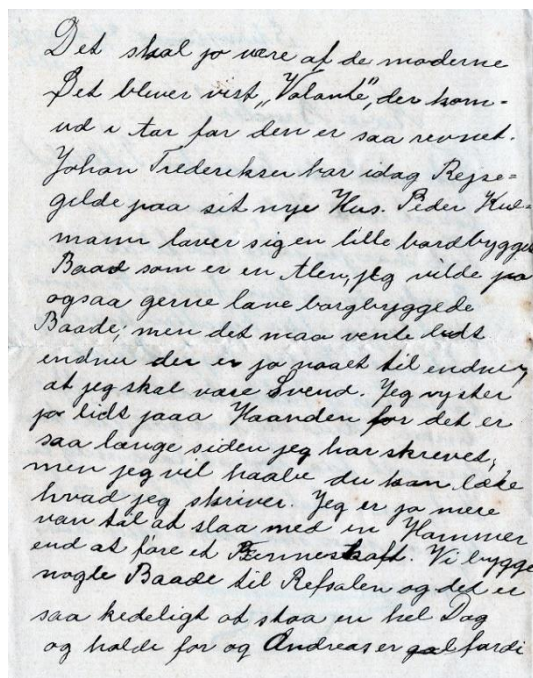 Det skal jo være af de moderne
Det bliver vist „Valante", der kom-
ud i tør før den er saa revnet.
Johan Frederiksen har idag Rejse=
gilde paa sit nye Hus. Peder Kul=
mann laver sig en lille bordbygget
Baad som er en Alen, jeg vilde jo
ogsaa gerne lave borgbyggede
Baade; men det maa vente lidt
endnu der er jo noget til endnu
at jeg skal være Svend. Jeg ryster
jo lidt paa Haanden for det er
saa længe siden jeg har skrevet,
men jeg vil haabe du kan læse
hvad jeg skriver. Jeg er jo mere
van til at slaa med en Hammer
end at føre et Penneskaft. Vi bygge
nogle Baade til Refsalen og det er
saa kedeligt at staa en hel Dag
og holde for og Andreas er gal fordi